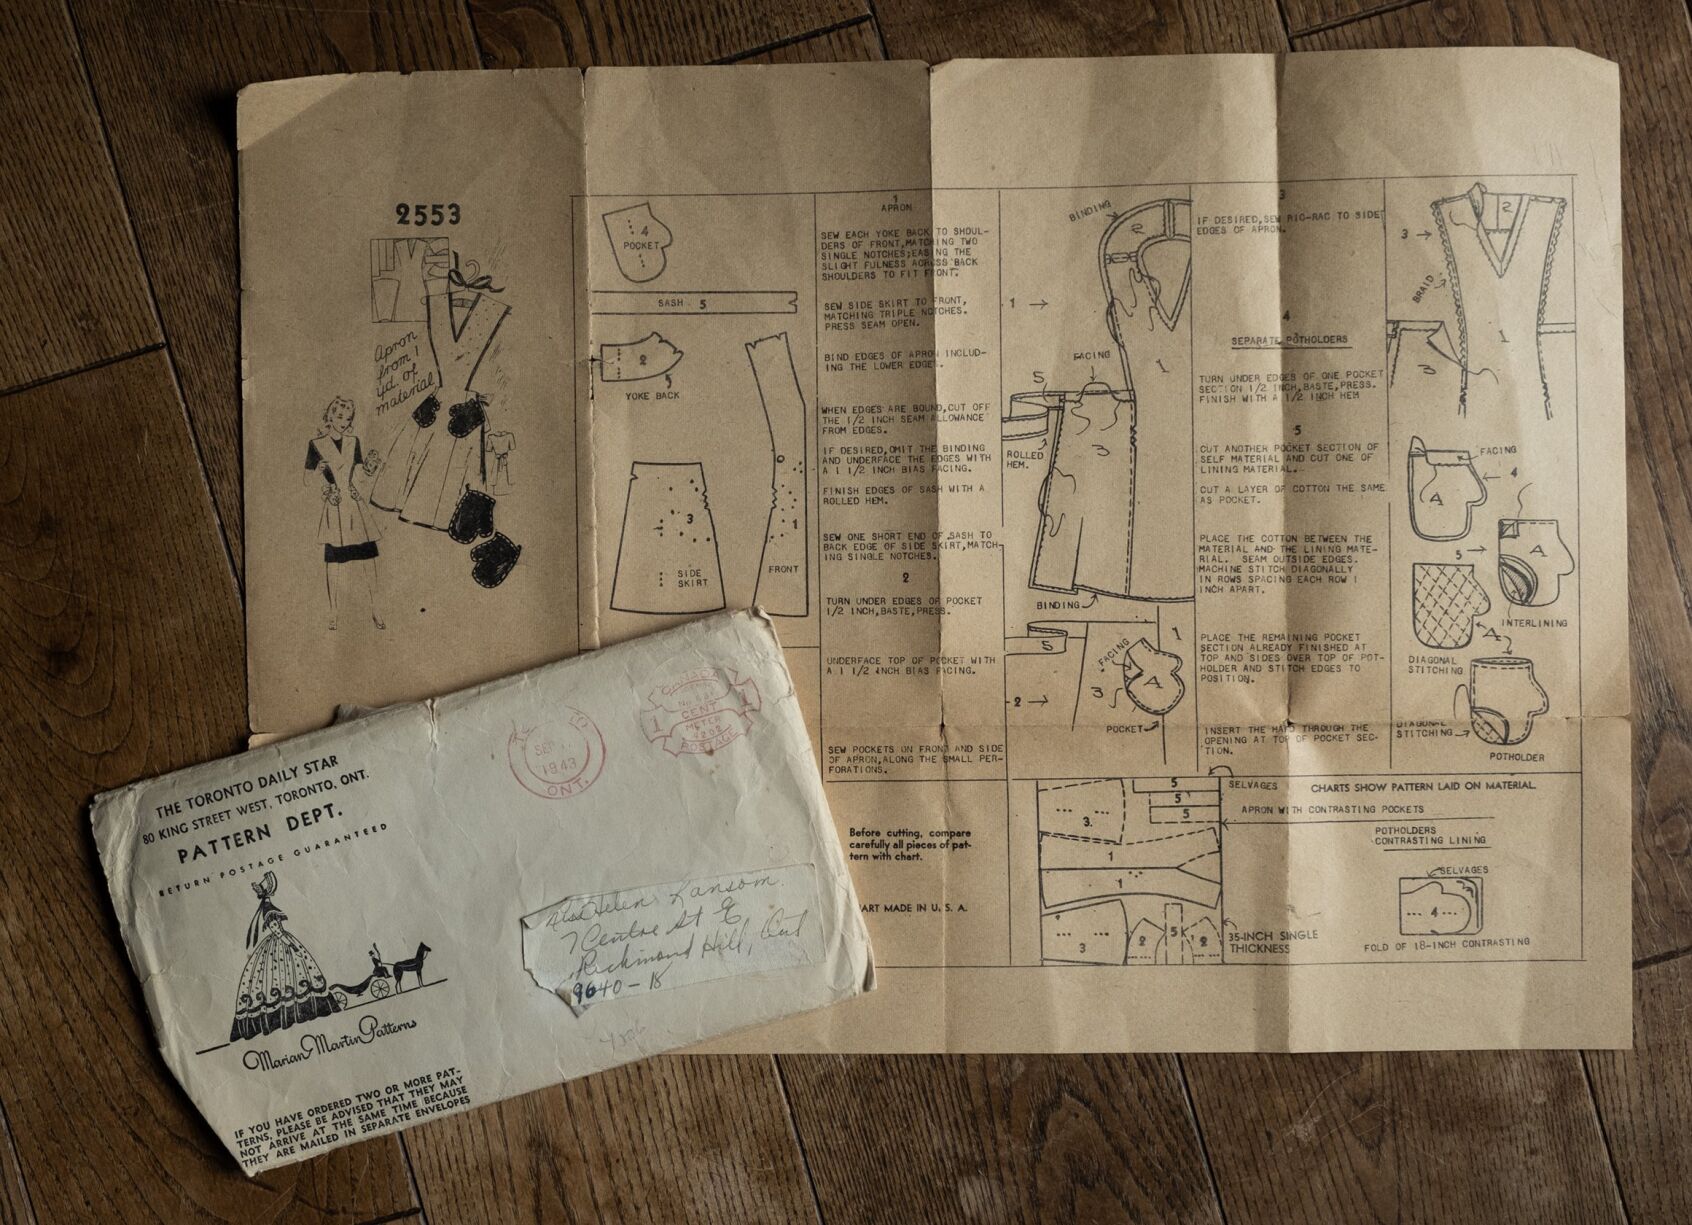 2553
Apron
from 1
yd. of
material
4
POCKET
SASH 5
2
YOKE BACK
3
SIDE
SKIRT
1
FRONT
1
APRON
SEW EACH YOKE BACK TO SHOUL-
DERS OF FRONT,MATCHING TWO
SINGLE NOTCHES;EASING THE
SLIGHT FULNESS ACROSS BACK
SHOULDERS TO FIT FRONT.
SEW SIDE SKIRT TO FRONT,
MATCHING TRIPLE NOTCHES.
PRESS SEAM OPEN.
BIND EDGES OF APRON INCLUD-
ING THE LOWER EDGE.
WHEN EDGES ARE BOUND,CUT OFF
THE 1/2 INCH SEAM ALLOWANCE
FROM EDGES.
IF DESIRED,OMIT THE BINDING
AND UNDERFACE THE EDGES WITH
A 1 1/2 INCH BIAS FACING.
FINISH EDGES OF SASH WITH A
ROLLED HEM.
SEW ONE SHORT END OF SASH TO
BACK EDGE OF SIDE SKIRT,MATCH-
ING SINGLE NOTCHES.
2
TURN UNDER EDGES OF POCKET
1/2 INCH,BASTE,PRESS.
UNDERFACE TOP OF POCKET WITH
A 1 1/2 INCH BIAS FACING.
SEW POCKETS ON FRONT AND SIDE
OF APRON,ALONG THE SMALL PER-
FORATIONS.
Before cutting, compare
carefully all pieces of pat-
tern with chart.
ART MADE IN U. S. A.
BINDING
2
1
FACING
1
5
ROLLED
HEM.
3
BINDING
5
1
FACING
3
A
2
POCKET
3
IF DESIRED,SEW RIC-RAC TO SIDE
EDGES OF APRON.
4
SEPARATE POTHOLDERS
TURN UNDER EDGES OF ONE POCKET
SECTION 1/2 INCH,BASTE,PRESS.
FINISH WITH A 1/2 INCH HEM
5
CUT ANOTHER POCKET SECTION OF
SELF MATERIAL AND CUT ONE OF
LINING MATERIAL.
CUT A LAYER OF COTTON THE SAME
AS POCKET.
PLACE THE COTTON BETWEEN THE
MATERIAL AND THE LINING MATE-
RIAL. SEAM OUTSIDE EDGES.
MACHINE STITCH DIAGONALLY
IN ROWS SPACING EACH ROW 1
INCH APART.
PLACE THE REMAINING POCKET
SECTION ALREADY FINISHED AT
TOP AND SIDES OVER TOP OF POT-
HOLDER AND STITCH EDGES TO
POSITION.
INSERT THE HAND THROUGH THE
OPENING AT TOP OF POCKET SEC-
TION.
2
3
BRAID
1
3
FACING
4
A
5
A
INTERLINING
A
DIAGONAL
STITCHING
DIAGONAL
STITCHING
POTHOLDER
5
5
5
3
1
1
3
2
5
2
SELVAGES
CHARTS SHOW PATTERN LAID ON MATERIAL
APRON WITH CONTRASTING POCKETS
POTHOLDERS
CONTRASTING LINING
SELVAGES
4
35-INCH SINGLE
THICKNESS
FOLD OF 18-INCH CONTRASTING
THE TORONTO DAILY STAR
80 KING STREET WEST, TORONTO, ONT.
PATTERN DEPT.
RETURN POSTAGE GUARANTEED
Marian Martin Patterns
IF YOU HAVE ORDERED TWO OR MORE PAT-
TERNS, PLEASE BE ADVISED THAT THEY MAY
NOT ARRIVE AT THE SAME TIME BECAUSE
THEY ARE MAILED IN SEPARATE ENVELOPES
SEP
1943
ONT.
CANADA
1
CENT
1
METER
POSTAGE
Helen Ransom.
7 Centre St E
Richmond Hill, Ont
9640-18